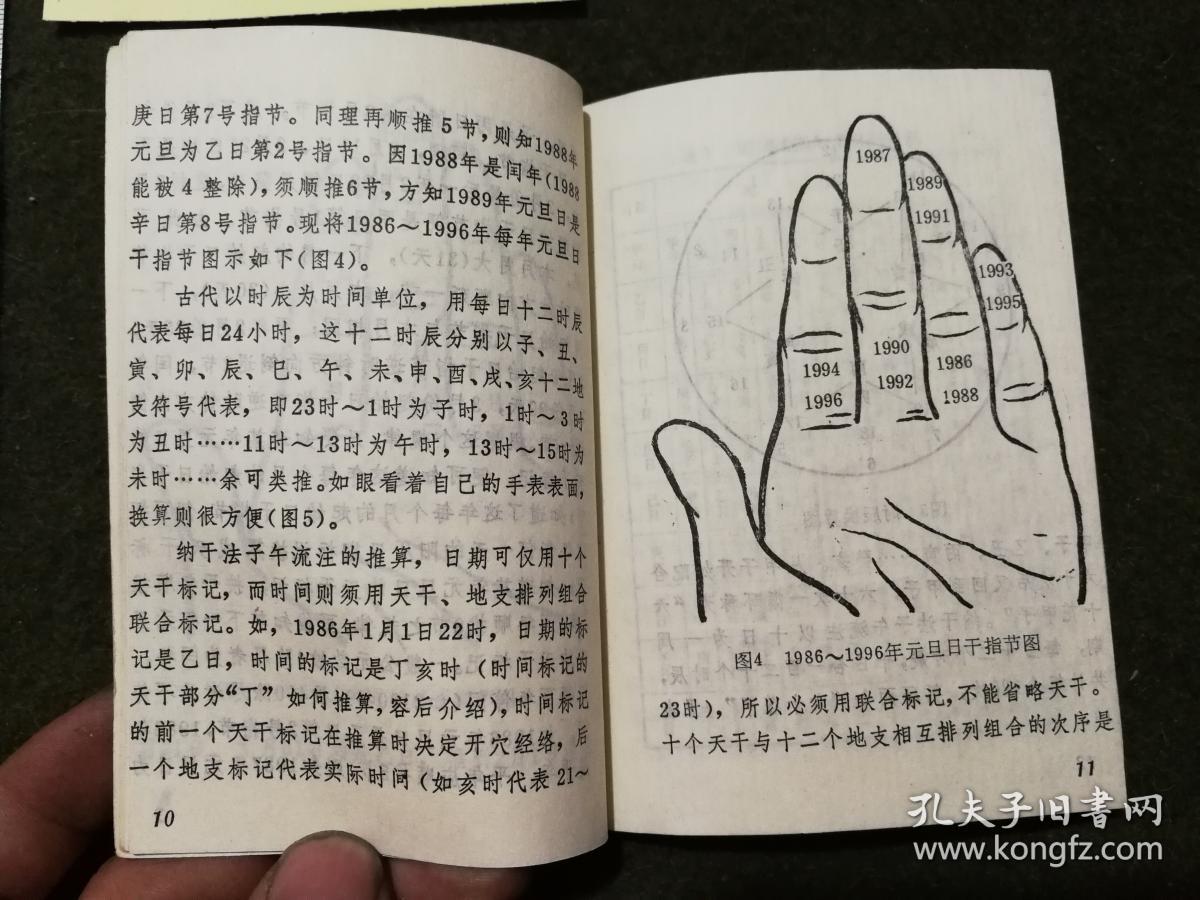 庚日第7号指节。同理再顺推5节,则知1988年
元旦为乙日第2号指节。因1988年是闰年(1988
能被4整除),须顺推6节,方知1989年元旦日是
辛日第8号指节。现将1986～1996年每年元旦日
干指节图示如下(图4)。
古代以时辰为时间单位,用每日十二时辰
代表每日24小时,这十二时辰分别以子、丑、
寅、卯、辰、巳、午、未、申、酉、戌、亥十二地
支符号代表,即23时～1时为子时,1时～3时
为丑时……11时～13时为午时,13时～15时为
未时……余可类推。如眼看着自己的手表表面,
换算则很方便(图5)。
纳干法子午流注的推算,日期可仅用十个
天干标记,而时间则须用天干、地支排列组合
联合标记。如,1986年1月1日22时,日期的标
记是乙日,时间的标记是丁亥时(时间标记的
天干部分“丁”如何推算,容后介绍),时间标记
的前一个天干标记在推算时决定开穴经络,后
一个地支标记代表实际时间(如亥时代表21～
10
1987
1989
1991
1993
1995
1990
1992
1986
1988
1994
1996
图4 1986～1996年元旦日干指节图
23时),所以必须用联合标记,不能省略天干。
十个天干与十二个地支相互排列组合的次序是
11
孔夫子旧书网
www.kongfz.com